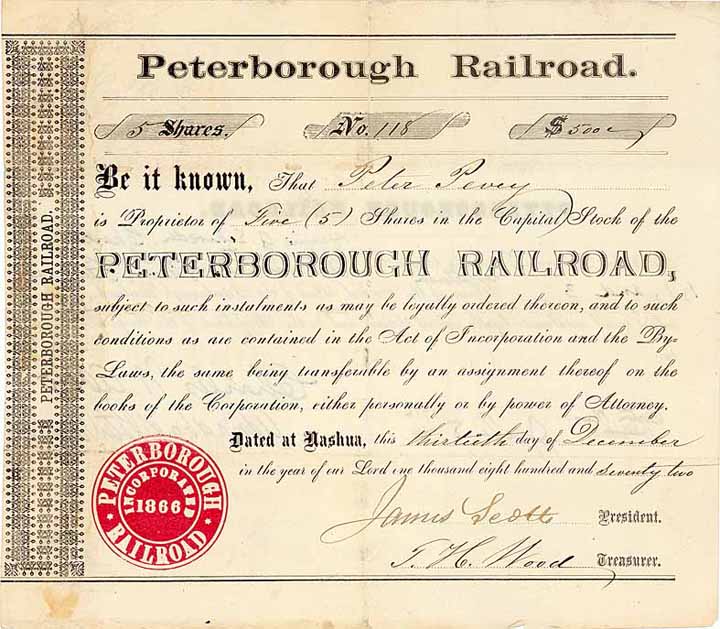 Peterborough Railroad.
5 Shares. No. 118 $ 500
Be it known, That Peter Pevey
is Proprietor of Five (5) Shares in the Capital Stock of the
PETERBOROUGH RAILROAD,
subject to such instalments as may be legally ordered thereon, and to such
conditions as are contained in the Act of Incorporation and the By-
Laws, the same being transferable by an assignment thereof on the
books of the Corporation, either personally or by power of Attorney.
Dated at Nashua, this thirtieth day of December
in the year of our Lord one thousand eight hundred and seventy two
James Scott President.
T. H. Wood Treasurer.
PETERBOROUGH RAILROAD.
PETERBOROUGH
INCORPORATED
1866
RAILROAD